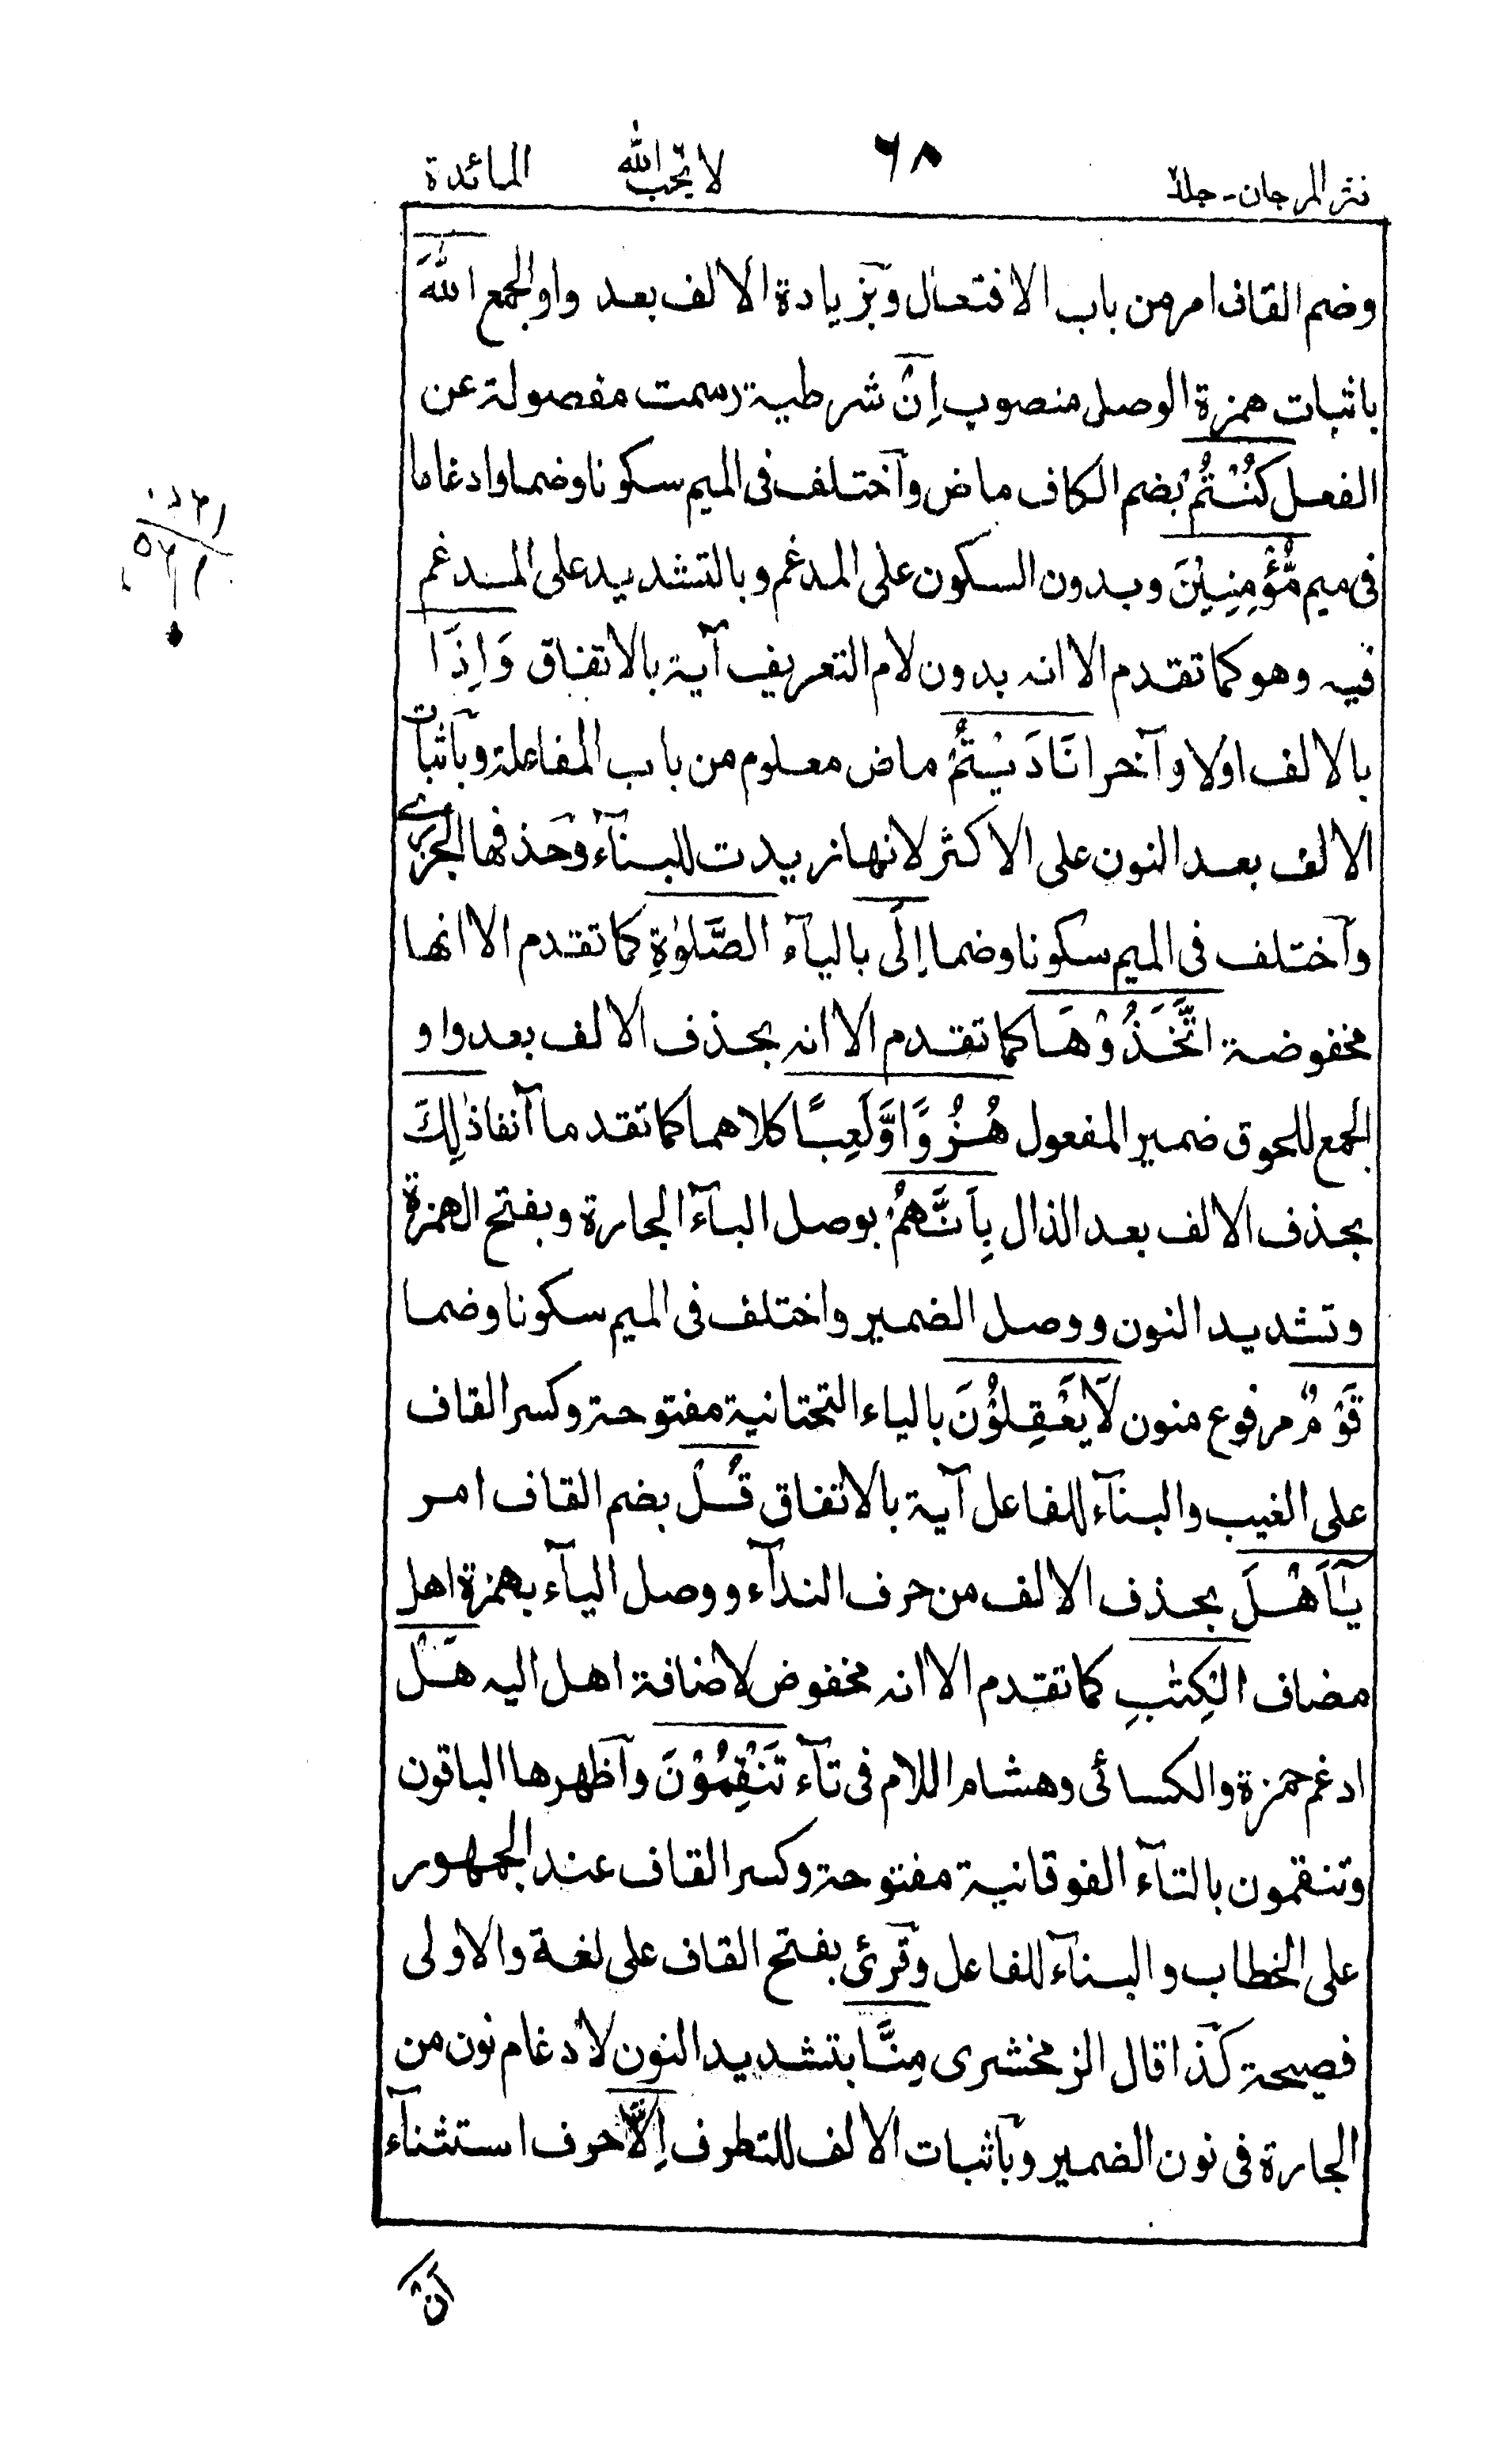 نثر المرجان - جلد ٢
٦٨
لا يحب الله
المائدة
وضم القاف امر من باب الافتعال وبزيادة الالف بعد واو الجمع اللّٰهَ
باثبات همزة الوصل منصوب اِنْ شرطية رسمت مفصولة عن
الفعل كُنْتُمْ بضم الكاف ماض وآختلف فى الميم سكونا وضما وادغاما
فى ميم مُّؤْمِنِيْنَ وبدون السكون على المدغم وبالتشديد على المدغم
فيه وهو كما تقدم الا انه بدون لام التعريف آية بالاتفاق وَاِذَا
بالالف اولا وآخرا نَادَيْتُمْ ماض معلوم من باب المفاعلة وبآثبات
الالف بعد النون على الاكثر لانها زيدت للبنآء وحذفها الجزرى
وآختلف فى الميم سكونا وضما اِلَى باليآء الصَّلٰوةِ كما تقدم الا انها
مخفوضة اتَّخَذُوْهَا كما تقدم الا انه بحذف الالف بعد واو
الجمع للحوق ضمير المفعول هُزُوًا وَّلَعِبًا كلاهما كما تقدما آنفا ذٰلِكَ
بحذف الالف بعد الذال بِاَنَّهُمْ بوصل البآء الجارة وبفتح الهمزة
وتشديد النون ووصل الضمير واختلف فى الميم سكونا وضما
قَوْمٌ مرفوع منون لَا يَعْقِلُوْنَ بالياء التحتانية مفتوحة وكسر القاف
على الغيب والبنآء للفاعل آية بالاتفاق قُلْ بضم القاف امر
يٰٓاَهْلَ بحذف الالف من حرف الندآء ووصل اليآء بهمزة اهل
مضاف الْكِتٰبِ كما تقدم الا انه مخفوض لاضافة اهل اليه هَلْ
ادغم حمزة والكسائى وهشام اللام فى تآء تَنْقِمُوْنَ وآظهرها الباقون
وتنقمون بالتآء الفوقانية مفتوحة وكسر القاف عند الجمهور
على الخطاب والبنآء للفاعل وقرئ بفتح القاف على لغة والاولى
فصيحة كذا قال الزمخشرى مِنَّا بتشديد النون لادغام نون من
الجارة فى نون الضمير وبآثبات الالف للتطرف اِلَّا حرف استثنآء
اَنْ